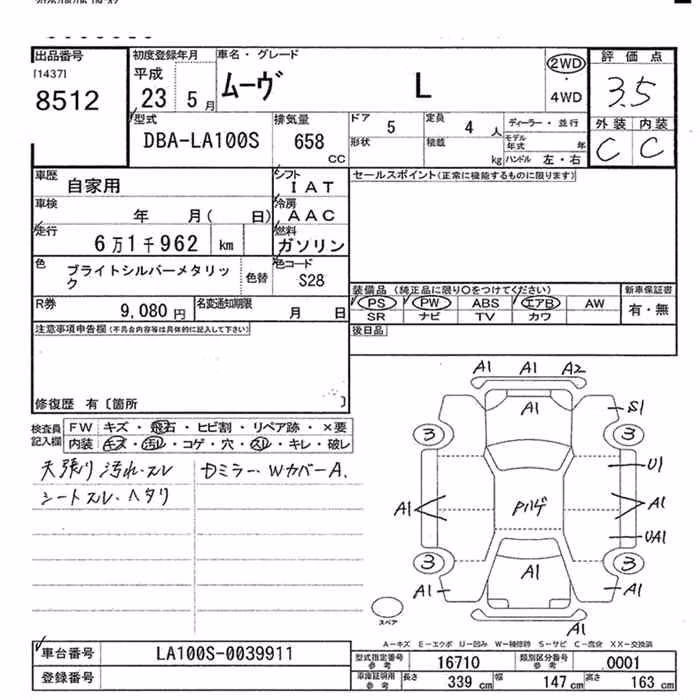 出品番号
[1437]
8512
初度登録年月
平成
23 5月
車名・グレード
ムーヴ L
2WD
・
4WD
評価点
3.5
外装 内装
C C
型式
DBA-LA100S
排気量
658
CC
ドア 5
定員 4人
ディーラー・並行
形状
積載 kg
モデル年式 年
ハンドル 左・右
車歴 自家用
シフト
IAT
車検 年 月( 日)
冷房
AAC
走行
6万1千962 km
燃料
ガソリン
色 ブライトシルバーメタリック
色替
色コード
S28
R券 9,080円
名変通知期限 月 日
セールスポイント(正常に機能するものに限ります)
装備品 (純正品に限り○をつけてください)
PS PW ABS エアB AW
SR ナビ TV カワ
新車保証書
有・無
後日品
注意事項申告欄(不具合内容等は具体的に記入して下さい)
修復歴 有〔箇所 〕
検査員
記入欄
FW キズ・飛石・ヒビ割・リペア跡・×要
内装 キズ・汚レ・コゲ・穴・スレ・キレ・破レ
天張り汚れ.スレ
シートスレ.ヘタリ
Dミラー.WカバーA.
A1 A1 A2
A1
S1
3 3
U1
A1 A1
Pハゲ
UA1
3 3
A1 A1 A1
A1
スペア
A-キズ E-エクボ U-凹み W-補修跡 S-サビ C-腐食 XX-交換済
車台番号 LA100S-0039911
登録番号
型式指定番号
参考
16710
類別区分番号
参考
0001
車庫証明用
参考
長さ 339 cm 幅 147 cm 高さ 163 cm